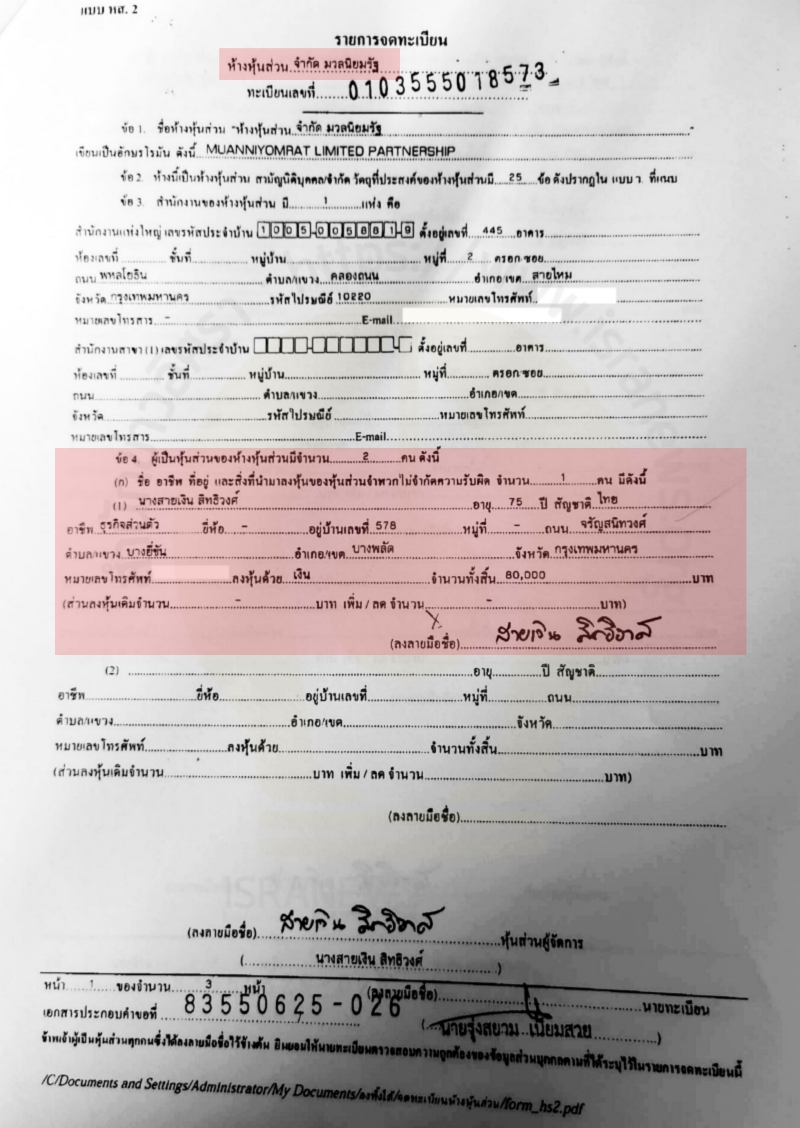 แบบ หส. 2
รายการจดทะเบียน
ห้างหุ้นส่วน จำกัด มวลนิยมรัฐ
ทะเบียนเลขที่ 0103555018573
ข้อ 1. ชื่อห้างหุ้นส่วน "ห้างหุ้นส่วน จำกัด มวลนิยมรัฐ"
เขียนเป็นอักษรโรมัน ดังนี้ MUANNIYOMRAT LIMITED PARTNERSHIP
ข้อ 2. ห้างนี้เป็นห้างหุ้นส่วน สามัญนิติบุคคล/จำกัด วัตถุที่ประสงค์ของห้างหุ้นส่วนมี 25 ข้อ ดังปรากฏใน แบบ ว. ที่แนบ
ข้อ 3. สำนักงานของห้างหุ้นส่วน มี 1 แห่ง คือ
สำนักงานแห่งใหญ่ เลขรหัสประจำบ้าน 1005-005881-9 ตั้งอยู่เลขที่ 445 อาคาร
ห้องเลขที่ ชั้นที่ หมู่บ้าน หมู่ที่ 2 ตรอก/ซอย
ถนน พหลโยธิน ตำบล/แขวง คลองถนน อำเภอ/เขต สายไหม
จังหวัด กรุงเทพมหานคร รหัสไปรษณีย์ 10220 หมายเลขโทรศัพท์
หมายเลขโทรสาร - E-mail
สำนักงานสาขา (1) เลขรหัสประจำบ้าน ตั้งอยู่เลขที่ อาคาร
ห้องเลขที่ ชั้นที่ หมู่บ้าน หมู่ที่ ตรอก/ซอย
ถนน ตำบล/แขวง อำเภอ/เขต
จังหวัด รหัสไปรษณีย์ หมายเลขโทรศัพท์
หมายเลขโทรสาร E-mail
ข้อ 4. ผู้เป็นหุ้นส่วนของห้างหุ้นส่วนมีจำนวน 2 คน ดังนี้
(ก) ชื่อ อาชีพ ที่อยู่ และสิ่งที่นำมาลงหุ้นของหุ้นส่วนจำพวกไม่จำกัดความรับผิด จำนวน 1 คน มีดังนี้
(1) นางสายเงิน สิทธิวงศ์ อายุ 75 ปี สัญชาติ ไทย
อาชีพ ธุรกิจส่วนตัว ยี่ห้อ - อยู่บ้านเลขที่ 578 หมู่ที่ - ถนน จรัญสนิทวงศ์
ตำบล/แขวง บางยี่ขัน อำเภอ/เขต บางพลัด จังหวัด กรุงเทพมหานคร
หมายเลขโทรศัพท์ ลงหุ้นด้วย เงิน จำนวนทั้งสิ้น 80,000 บาท
(ส่วนลงหุ้นเดิมจำนวน - บาท เพิ่ม / ลด จำนวน - บาท)
(ลงลายมือชื่อ) สายเงิน สิทธิวงศ์
(2) อายุ ปี สัญชาติ
อาชีพ ยี่ห้อ อยู่บ้านเลขที่ หมู่ที่ ถนน
ตำบล/แขวง อำเภอ/เขต จังหวัด
หมายเลขโทรศัพท์ ลงหุ้นด้วย จำนวนทั้งสิ้น บาท
(ส่วนลงหุ้นเดิมจำนวน บาท เพิ่ม / ลด จำนวน บาท)
(ลงลายมือชื่อ)
(ลงลายมือชื่อ) สายเงิน สิทธิวงศ์ หุ้นส่วนผู้จัดการ
( นางสายเงิน สิทธิวงศ์ )
หน้า 1 ของจำนวน 3 หน้า (ลงลายมือชื่อ) นายทะเบียน
เอกสารประกอบคำขอที่ 83550625-026 ( นายรุ่งสยาม เนียมสวย )
ข้าพเจ้าผู้เป็นหุ้นส่วนทุกคนซึ่งได้ลงลายมือชื่อไว้ข้างต้น ยินยอมให้นายทะเบียนตรวจสอบความถูกต้องของข้อมูลส่วนบุคคลตามที่ได้ระบุไว้ในรายการจดทะเบียนนี้
/C/Documents and Settings/Administrator/My Documents/ลงทั้งได้/จดทะเบียนห้างหุ้นส่วน/form_hs2.pdf